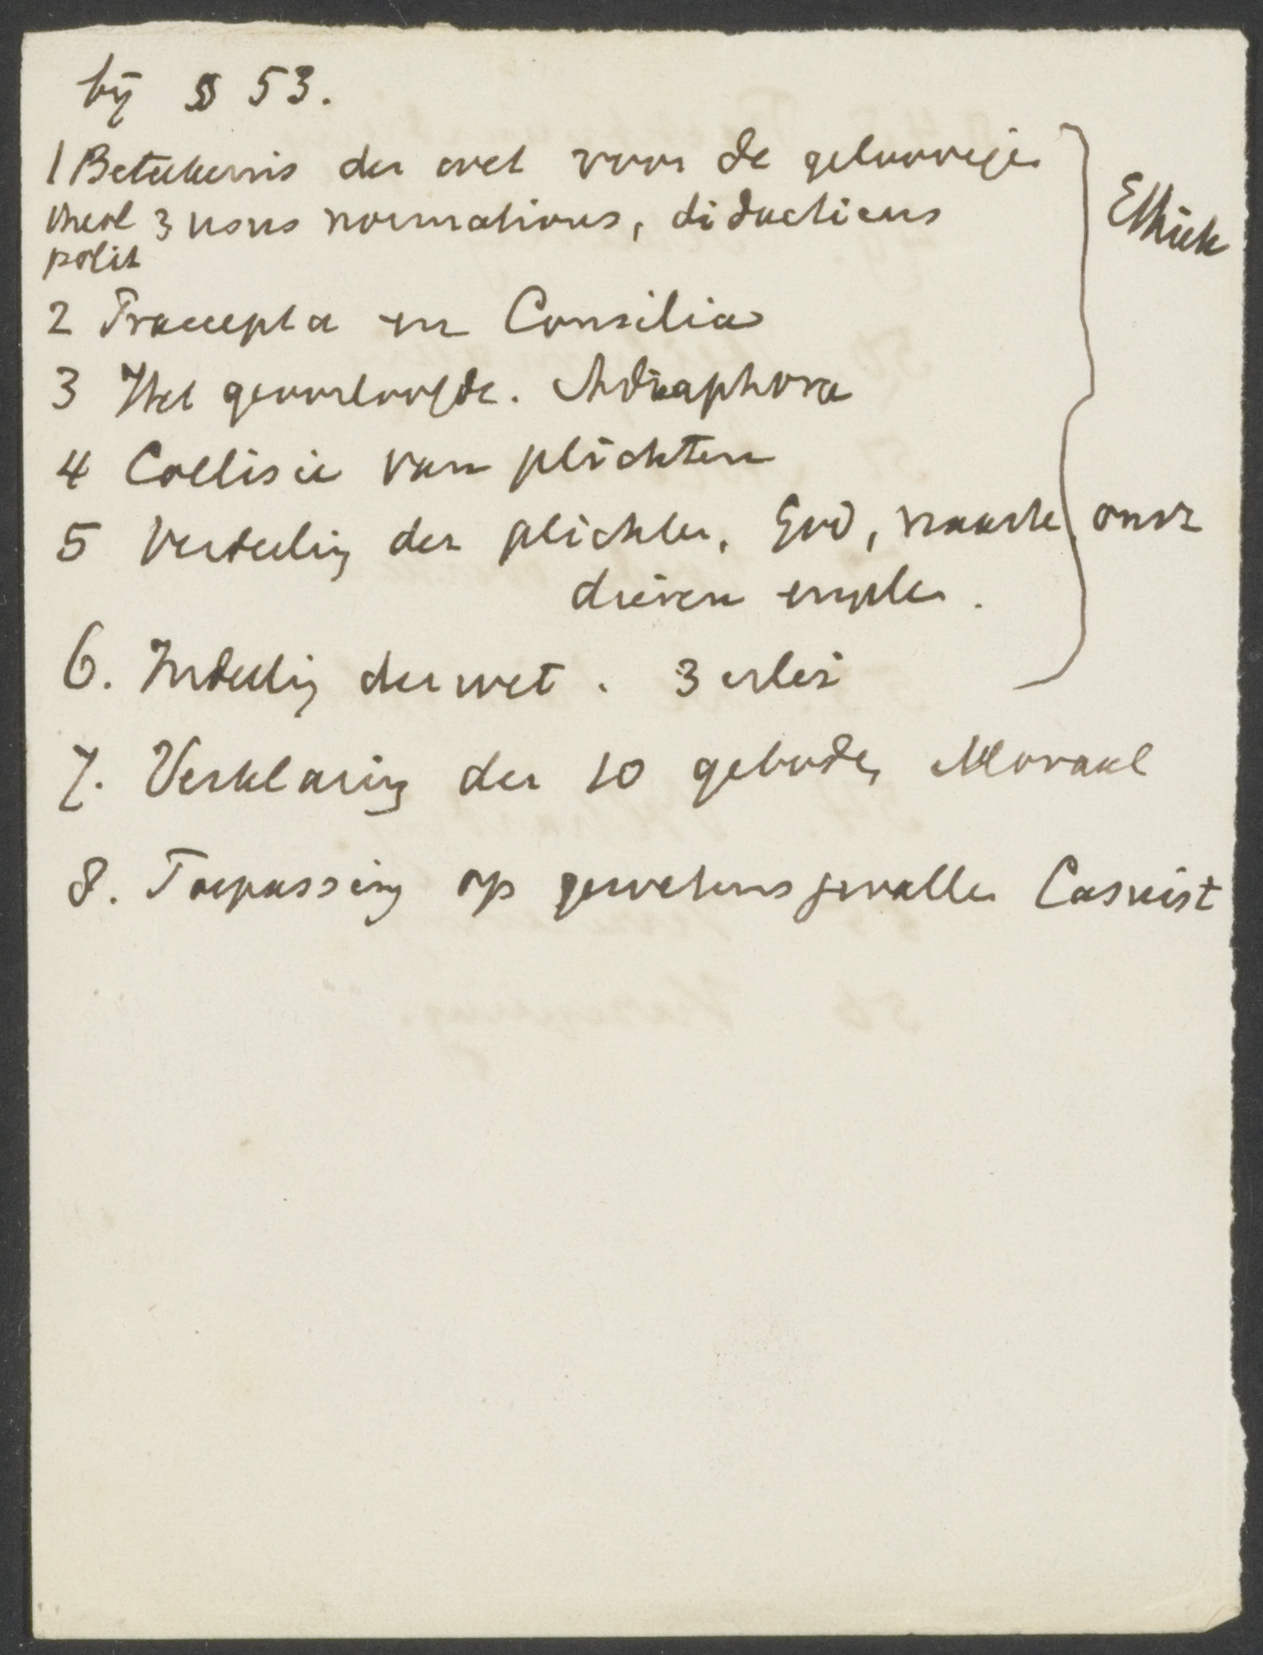 bij § 53.
1 Beteekenis der wet voor de geloovigen
theol 3 usus normativus, didacticus
polit
Ethiek
2 Praecepta en Consilia
3 Het geoorloofde. Adiaphora
4 Collisie van plichten
5 Verdeeling der plichten. God, naaste, onsz
dieren engelen.
6. Indeeling der wet. 3 erlei
7. Verklaring der 10 geboden Moraal
8. Toepassing op gewetensgevallen Casuist